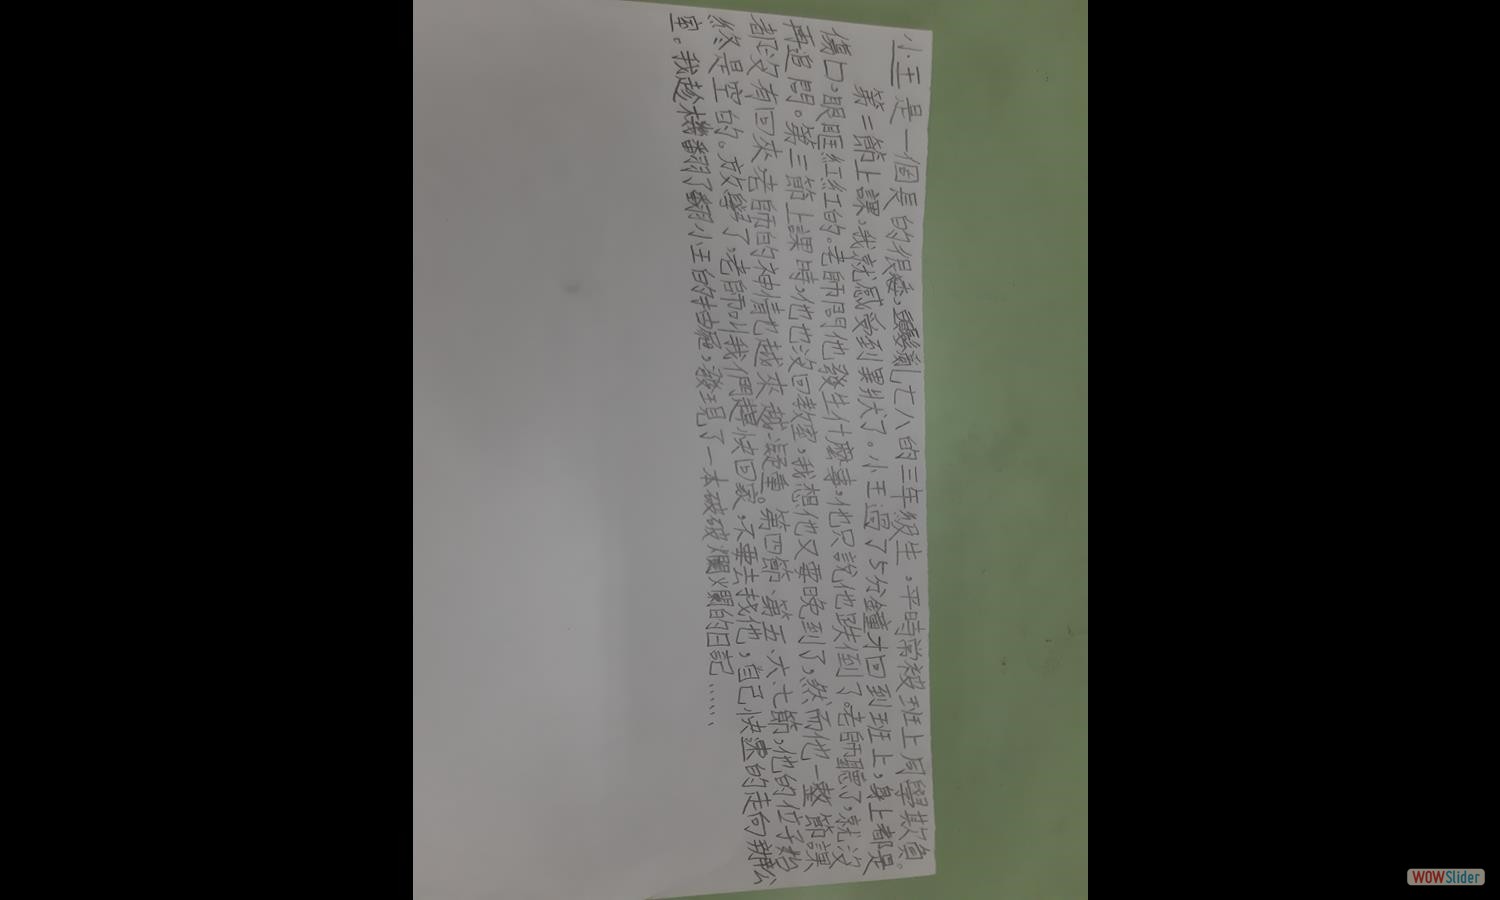 小王是一個長的很矮，髒亂七八的三年級生，平時常被班上同學欺負。
第二節上課，我就感受到異狀了。小王過了5分鐘才回到班上，身上都是
傷口，眼眶紅紅的。老師問他發生什麼事，他只說他跌倒了。老師聽了，就沒
再追問。第三節上課時，他也沒回教室，我想他又要晚到了，然而他一整節課
都沒有回來。老師的神情也越來越凝重。第四節、第五、六、七節，他的位子始
終是空的。放學了，老師叫我們趕快回家，不要去找他，自己快速的走向辦公
室。我趁機翻了翻小王的抽屜，發現了一本破破爛爛的日記……
WOWSlider